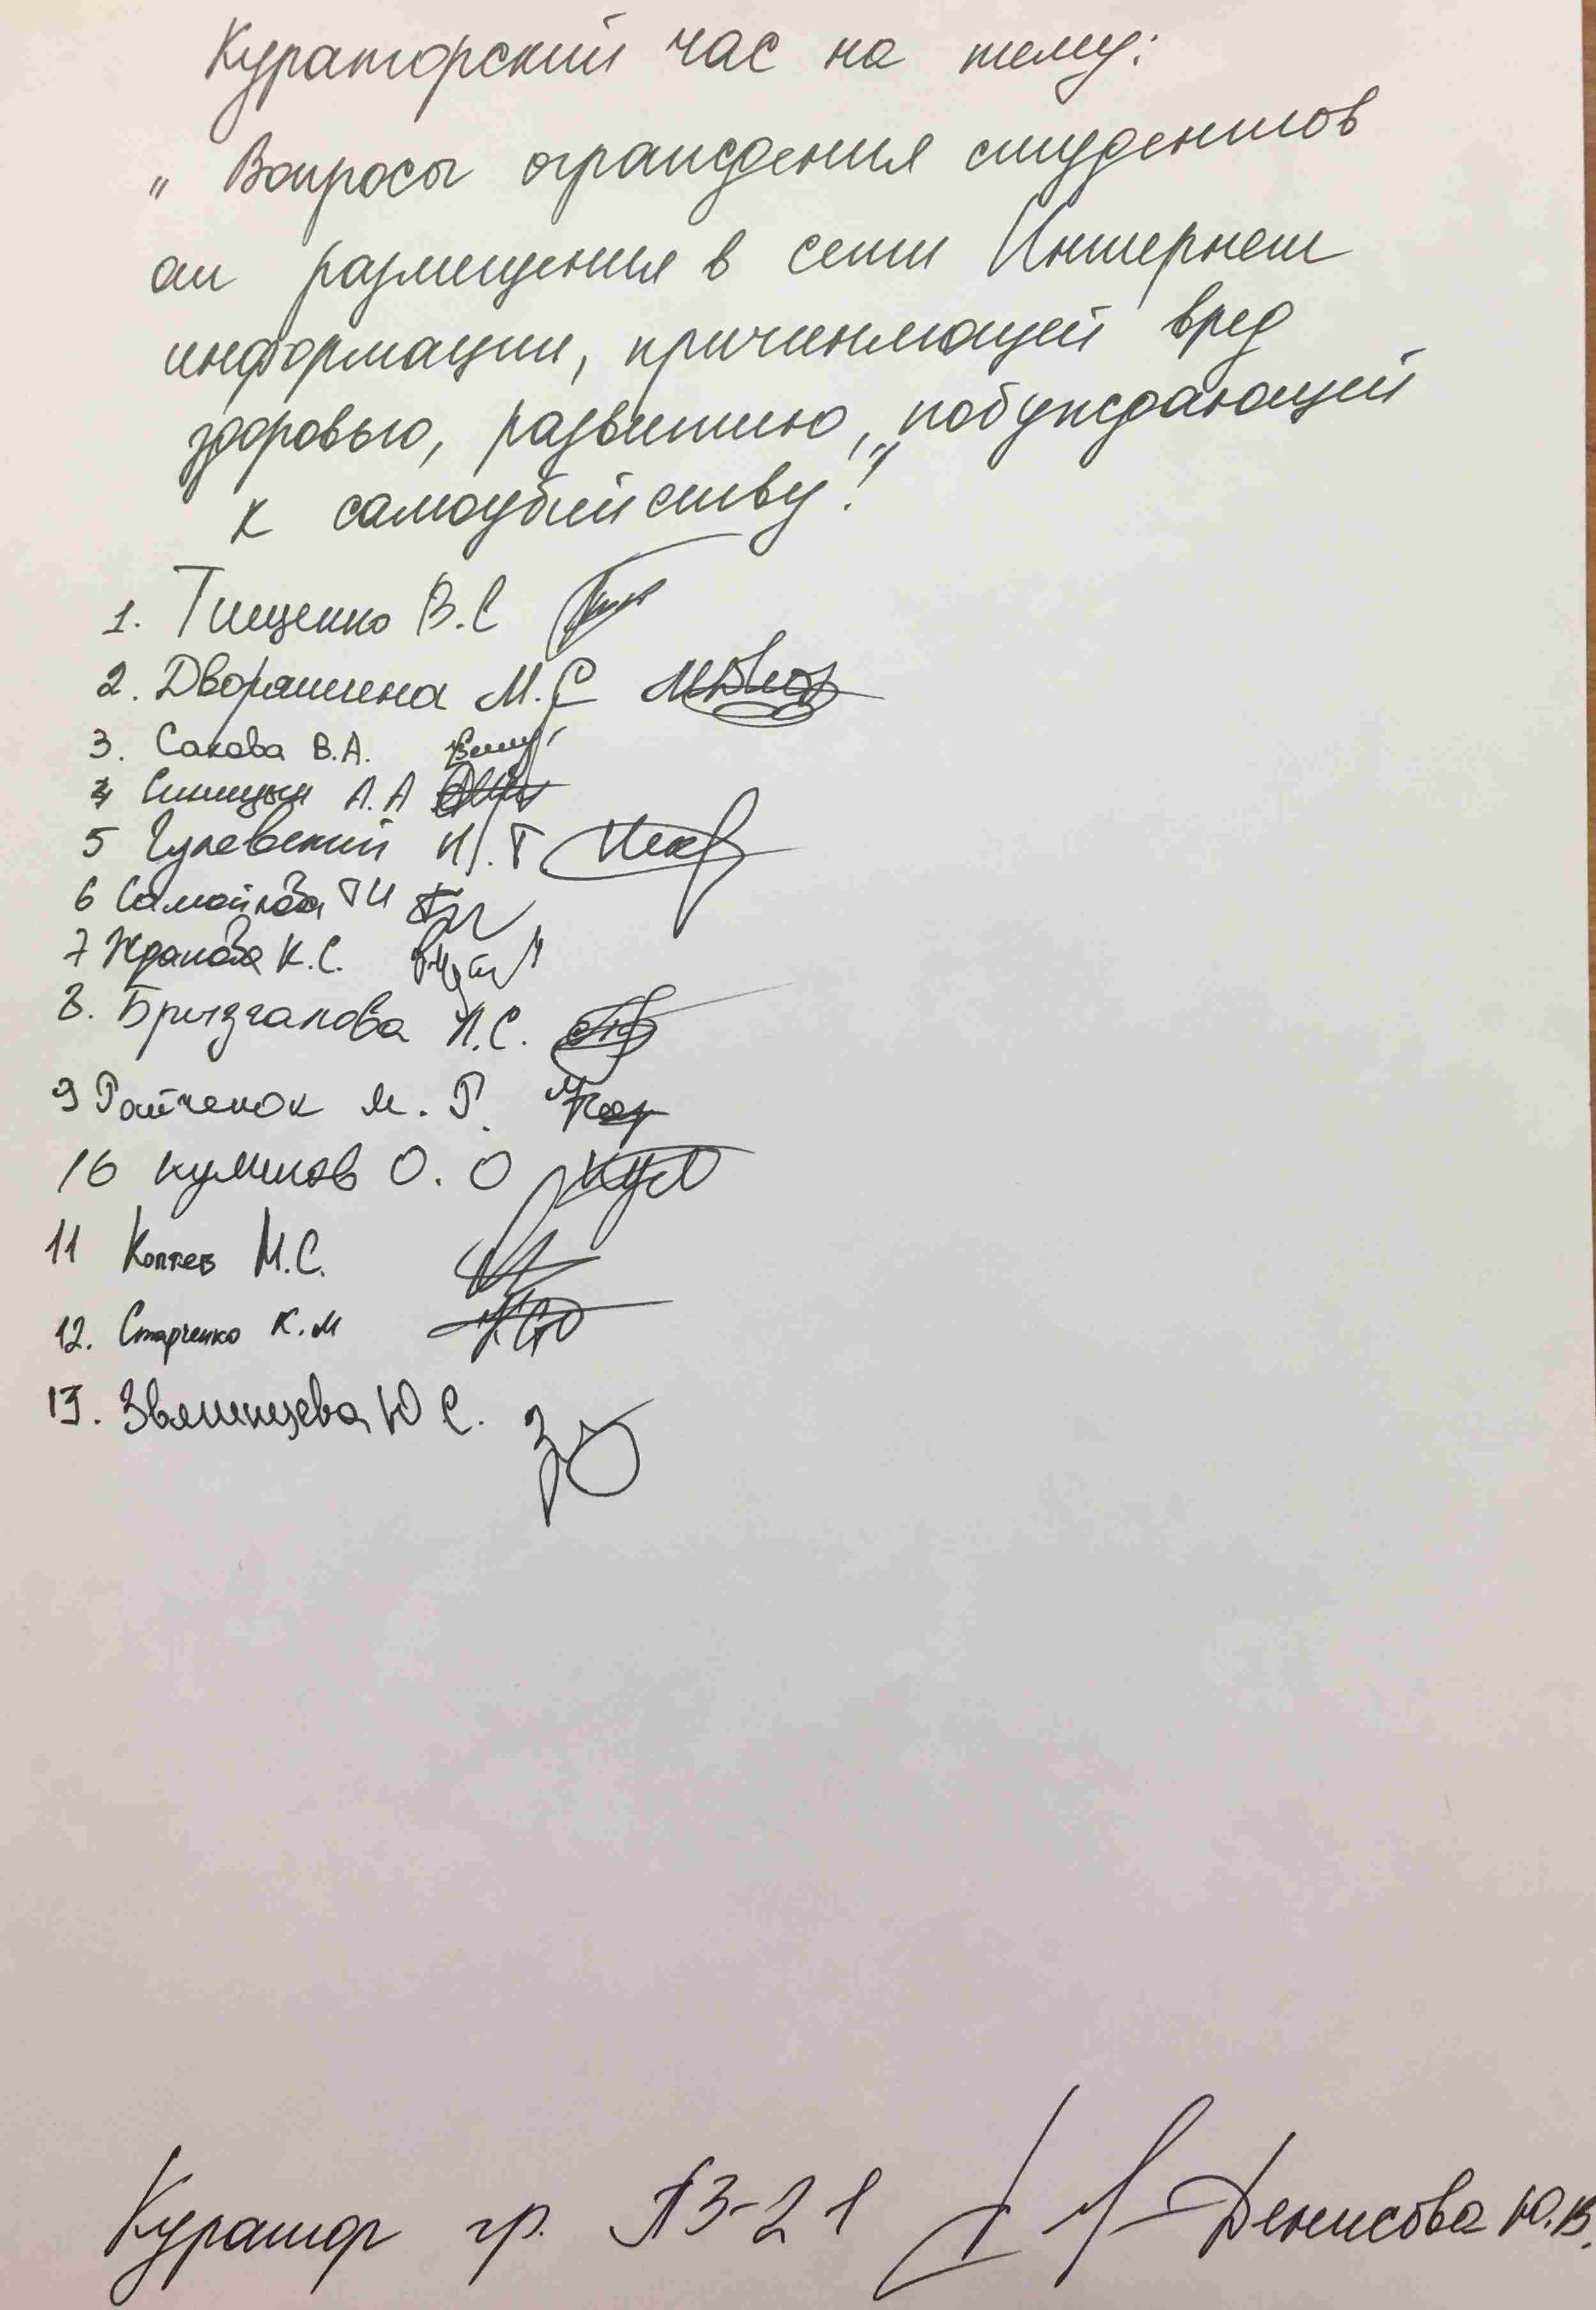 Кураторский час на тему:
„ Вопросы ограждения студентов
от размещения в сети Интернет
информации, причиняющей вред
здоровью, развитию, побуждающей
к самоубийству!"
1. Тищенко В.С
2. Дворяшина М.С
3. Сакова В.А.
4 Синицын А.А
5 Гулевский И.Г
6 Самойлова ТИ
7 Жданова К.С.
8. Брызгалова Л.С.
9 Райченок М.Р.
10 куликов О.О
11 Коптев М.С.
12. Старченко К.М
13. Звягинцева Ю С.
Куратор гр. ПЗ-21 Денисова Ю.В.